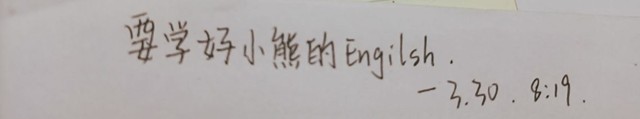 要学好小熊的Engilsh.
-3.30.8:19.